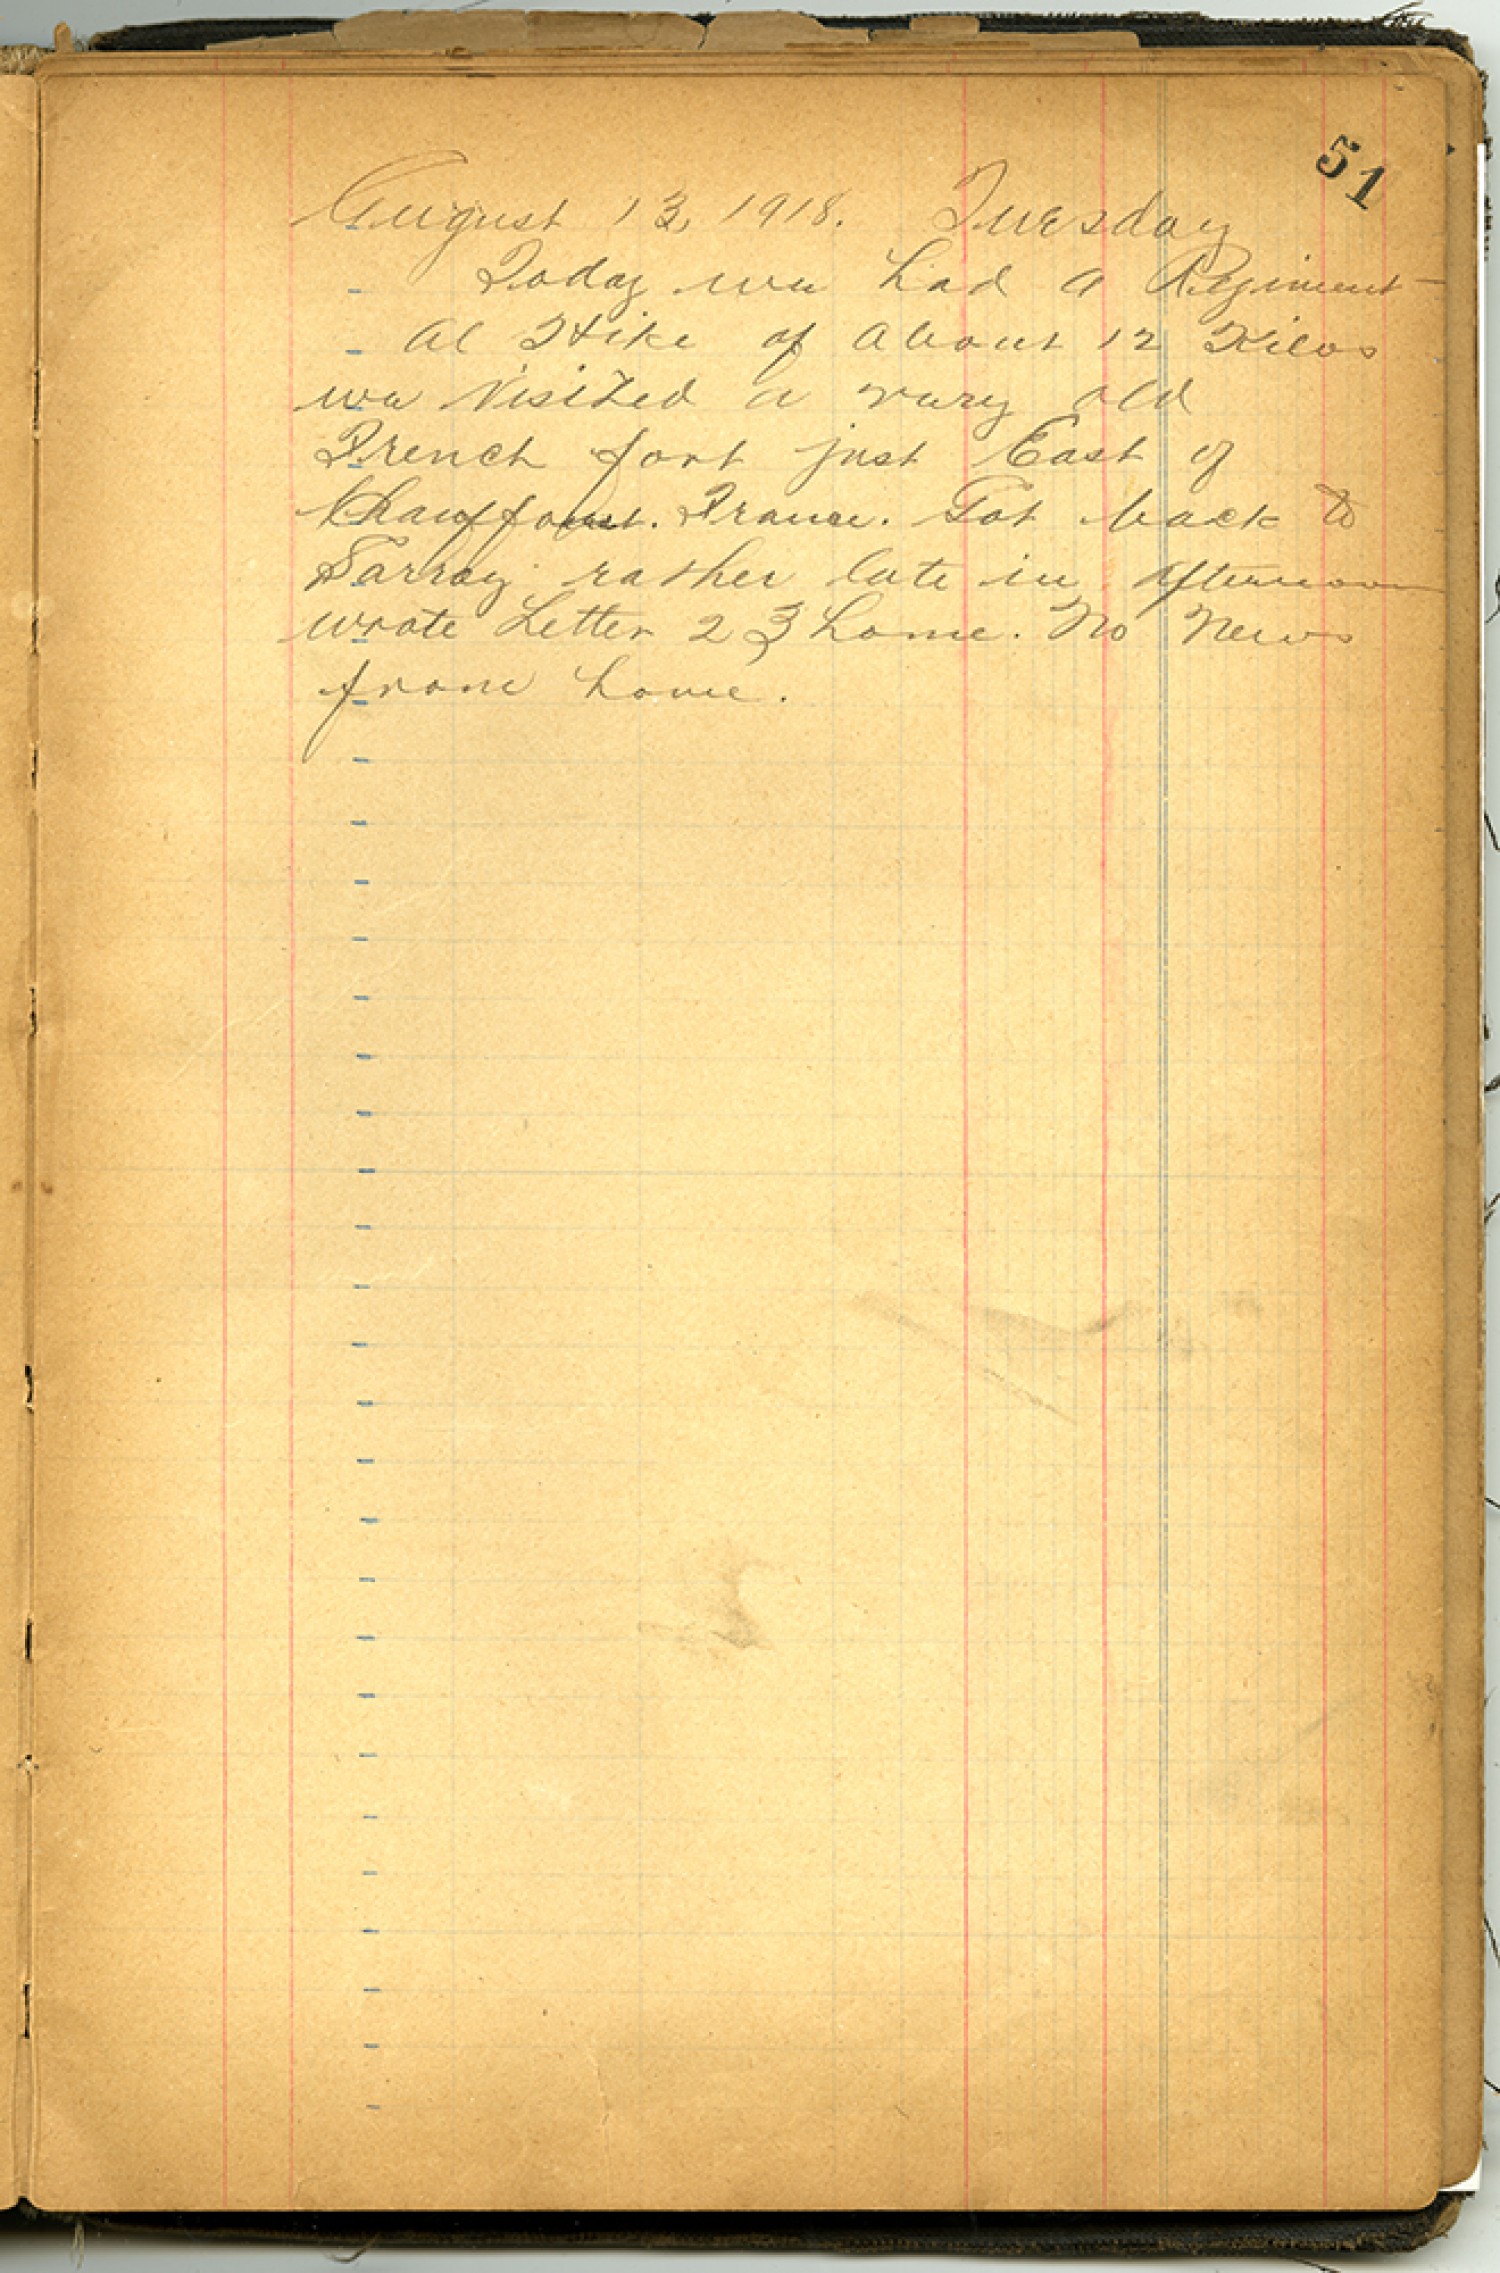 51
August 13, 1918. Tuesday
Today we had a Regiment-
al Hike of about 12 Kilos
we visited a very old
French fort just East of
Chauffourt. France. Got back to
Sarrey rather late in afternoon
wrote Letter 23 home. No News
from home.